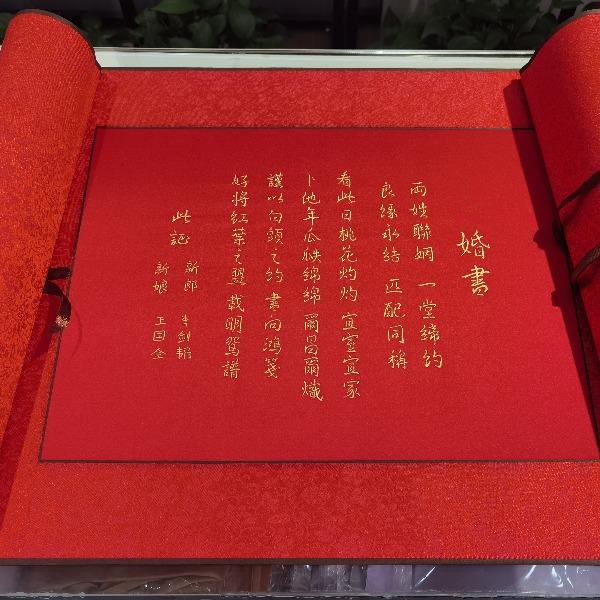 婚書
兩姓聯姻 一堂締約
良緣永結 匹配同稱
看此日桃花灼灼 宜室宜家
卜他年瓜瓞綿綿 爾昌爾熾
謹以白頭之約 書向鴻箋
好將紅葉之盟 載明鴛譜
此証
新郎 李剑韬
新娘 王国全